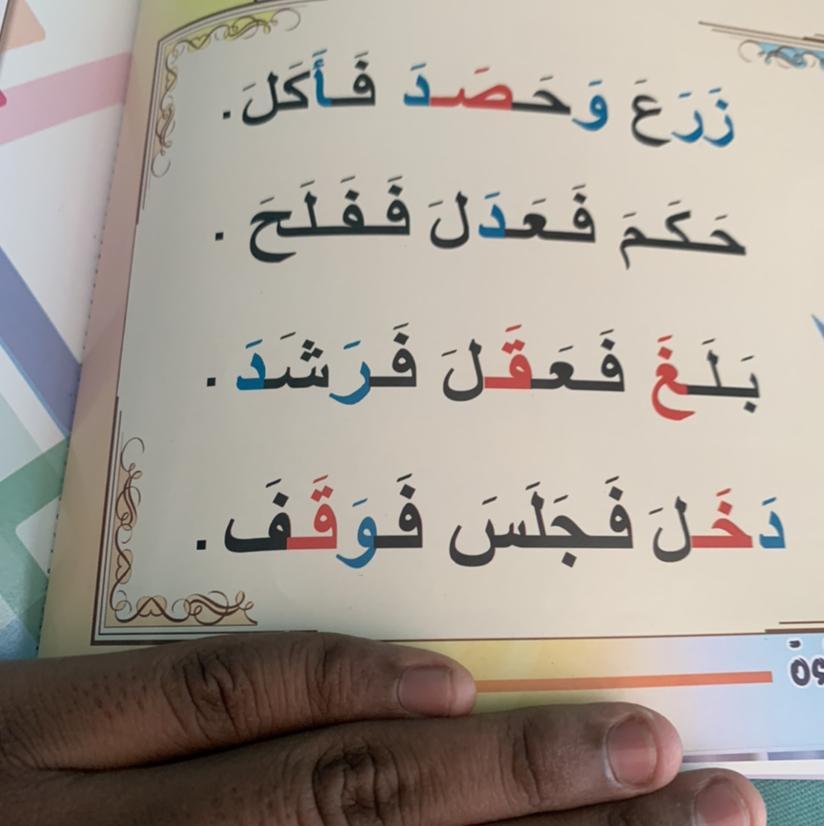 زَرَعَ وَحَصَدَ فَأَكَلَ.
حَكَمَ فَعَدَلَ فَفَلَحَ.
بَلَغَ فَعَقَلَ فَرَشَدَ.
دَخَلَ فَجَلَسَ فَوَقَفَ.